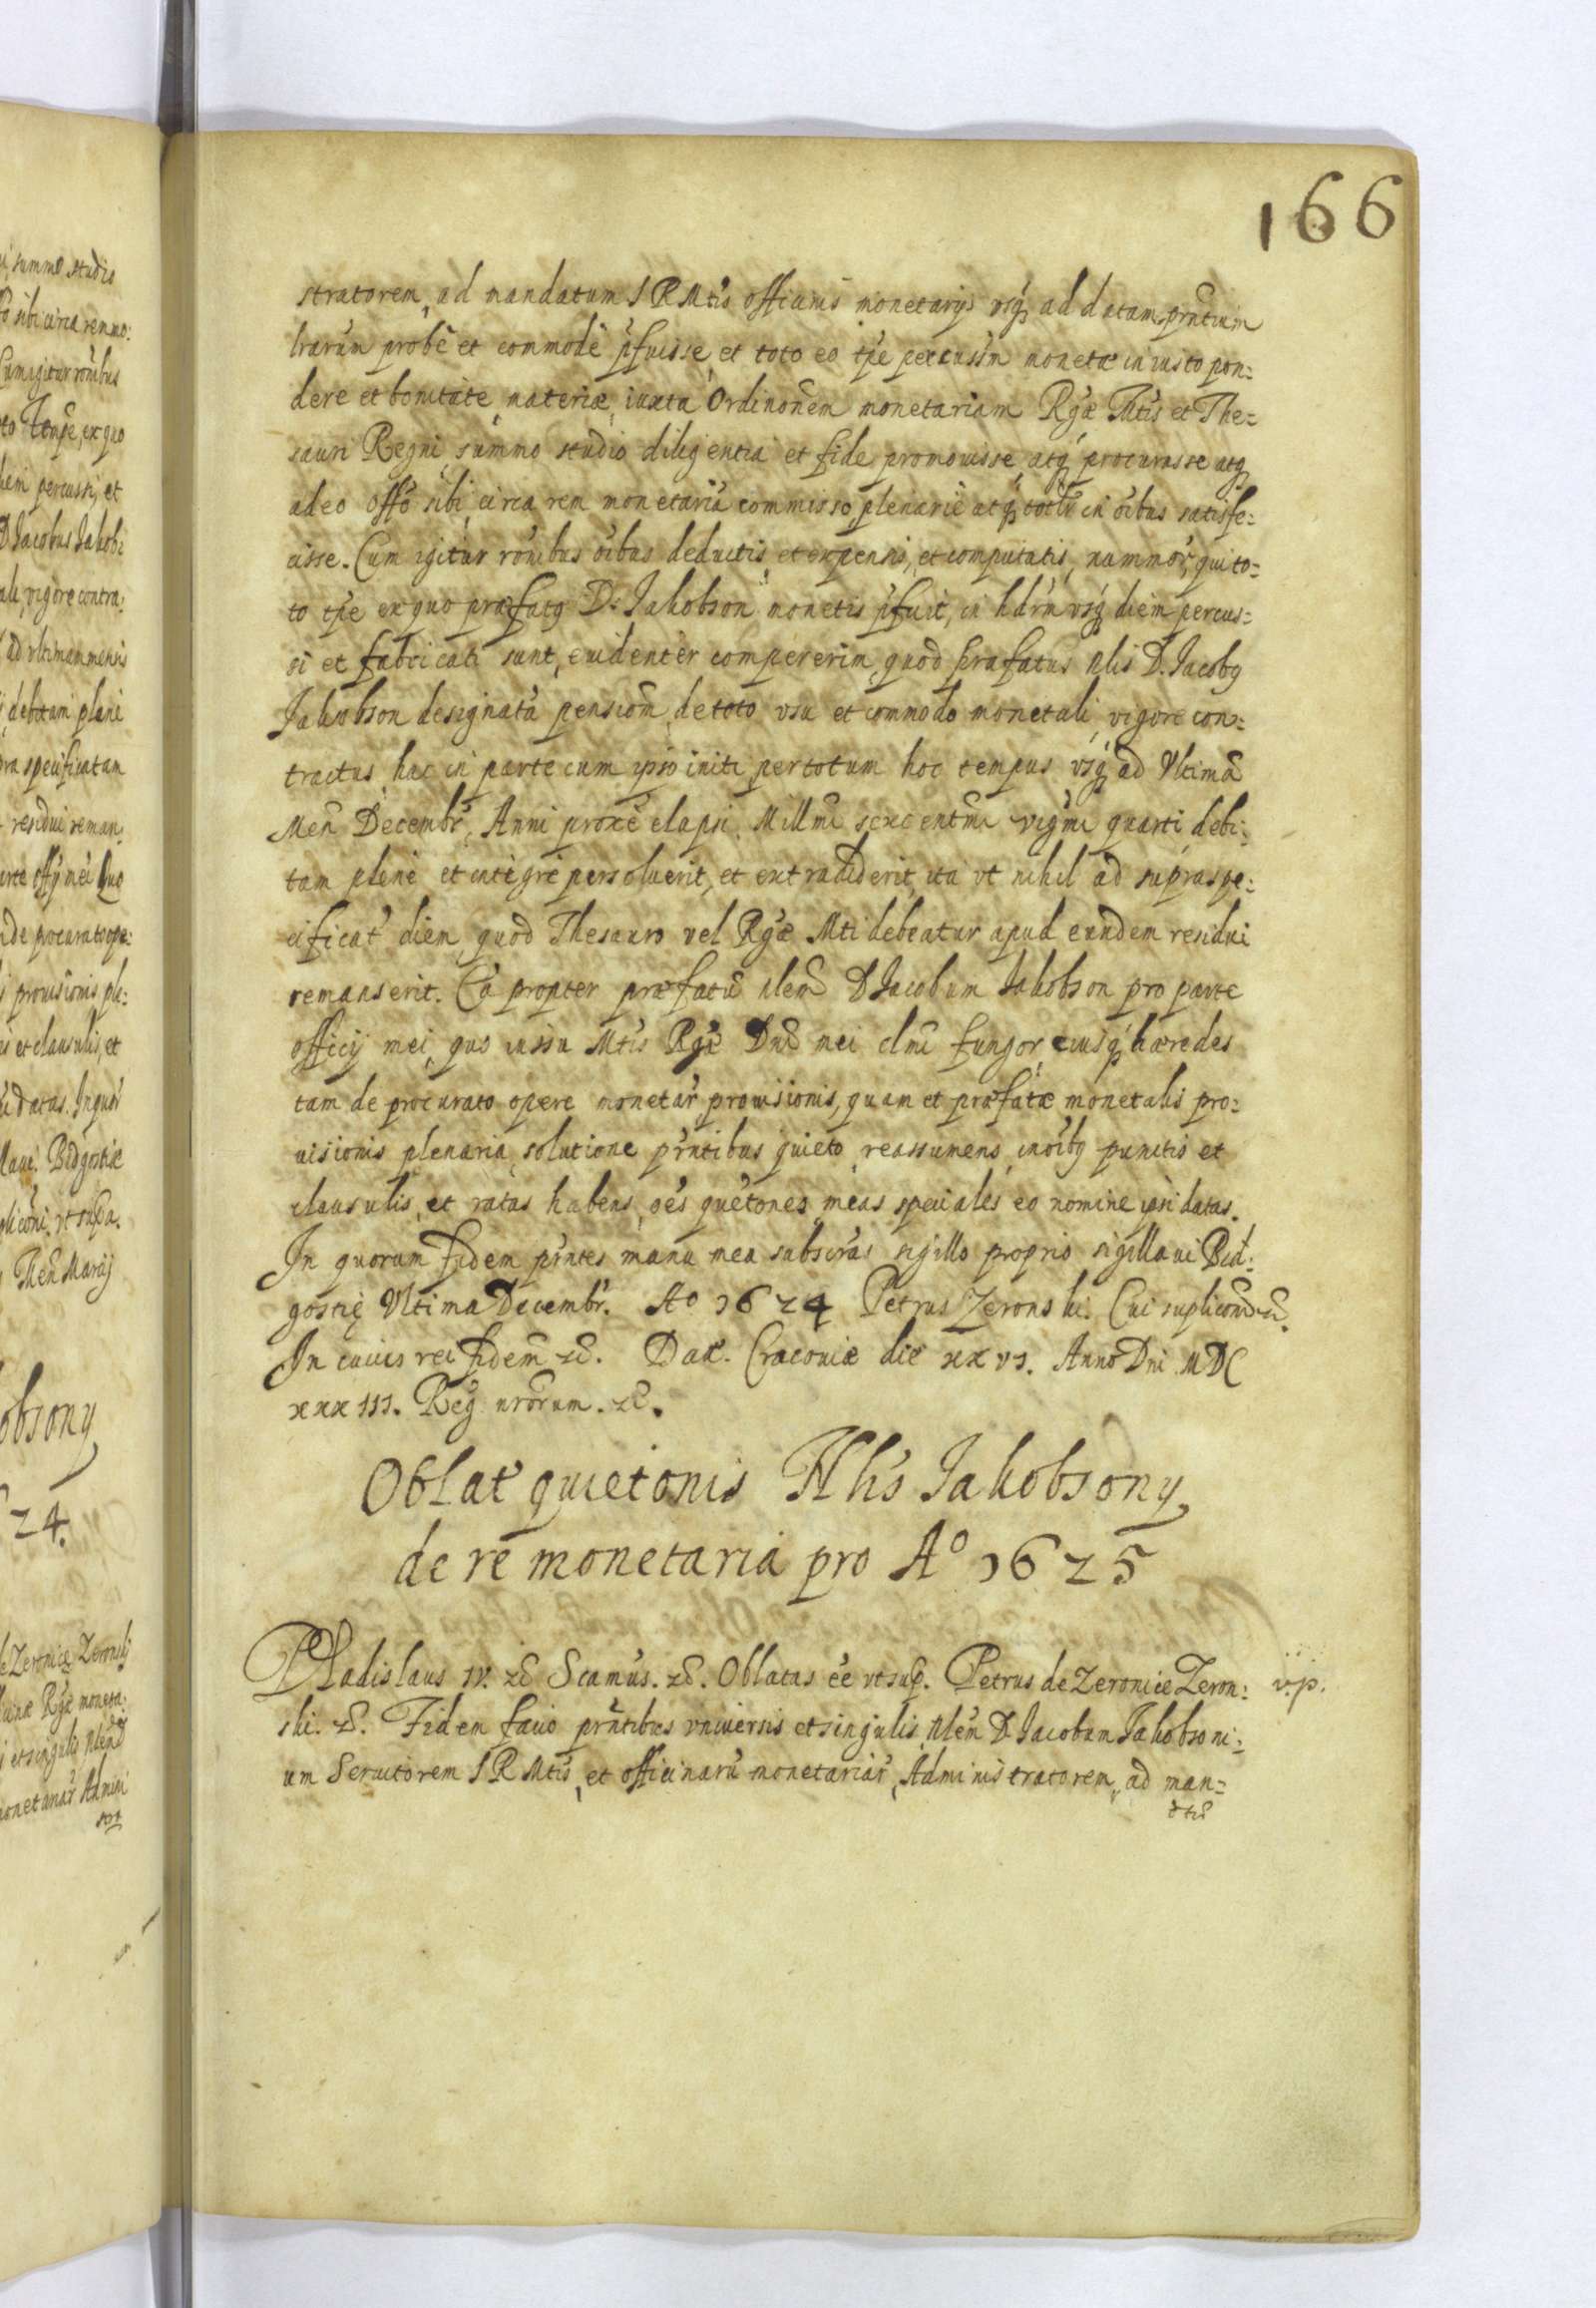 166
stratorem, ad mandatum S R Mtis officinis monetarijs vsq ad datam prntium
lrarum probè et commodè pfuisse, et toto eo tpe percussm monetæ in iusto pon:
dere et bonitate materiæ, iuxta Ordinonem monetariam Rgæ Mtis et The:
sauri Regni summo studio diligentia et fide promouisse, atq procurasse atq
adeo offo sibi circa rem monetariã commisso, plenariè atq totlr in oibus satisfe:
cisse. Cum igitur ronibus oibus deductis, et expensis, et computatis, nummor, qui to:
to tpe ex quo præfatq D. Jakobson monetis pfuit, in hdrn vsq diem percus:
si et fabricati sunt, euidenter compererim, quod præfatus Nlis D. Jacobq
Jakobson designatã pensiom, de toto vsu et commodo monetali, vigore con:
tractus hac in parte cum ipso initi per totum hoc tempus vsq ad Vltimã
Men Decembr, Anni proxè elapsi. Millmi sexcentmi vigmi quarti debi:
tam plenè et integrè persoluerit, et extradiderit, ita vt nihil ad supraspe:
cificat diem, quod Thesauro vel Rgæ Mti debeatur apud eundem residui
remanserit. Ea propter præfatũ Nlem D Jacobum Jakobson pro parte
officij mei, quo iussu Mtis Rgæ Dni mei clmi fungor, eiusq hæredes
tam de procurato opere monetar prouisionis, quam et præfatæ monetalis pro:
uisionis plenaria, solutione prntibus quieto, reassumens, in oibq punctis et
clausulis, et ratas habens, oes quietones meas speciales eo nomine ipsi datas.
In quorum fidem prntes manu mea subscras sigillo proprio sigillaui Bid:
gostię Vltima Decembr. Aº 1624 Petrus Zeronski. Cui suplicon
In cuius rei fidem &c. Dat. Cracouiæ die xxvj. Anno Dni MDC
xxxiii. Reg nrorum. &c.
Oblat quietonis Nlis Jakobsony
de re monetaria pro Aº 1625
Vladislaus IV. &c Scamus. &c. Oblatas ee vt sup. Petrus de Zeronice Zeron: v.p.
ski. &c. Fidem facio prntibus vniuersis et singulis, Nlem D. Jacobum Jakobsoni:
um Seruitorem S R Mtis, et officinarũ monetariar, Administratorem, ad man:
dtũ